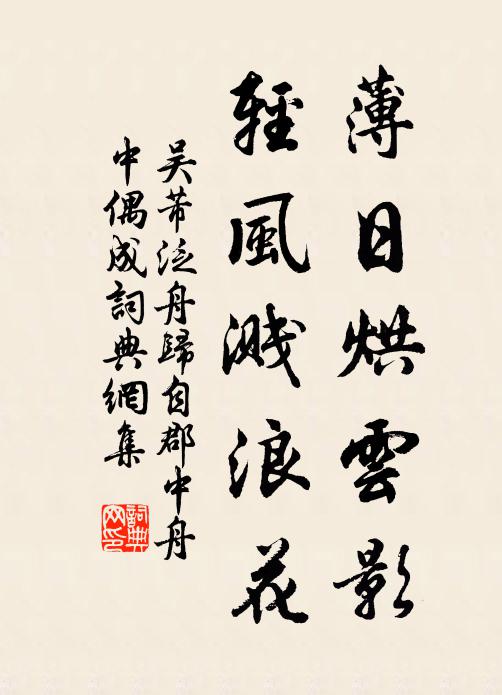 薄日烘雲影
輕風濺浪花
吴芾泛舟歸自郡中舟
中偶成詞典網集
詞典
网印